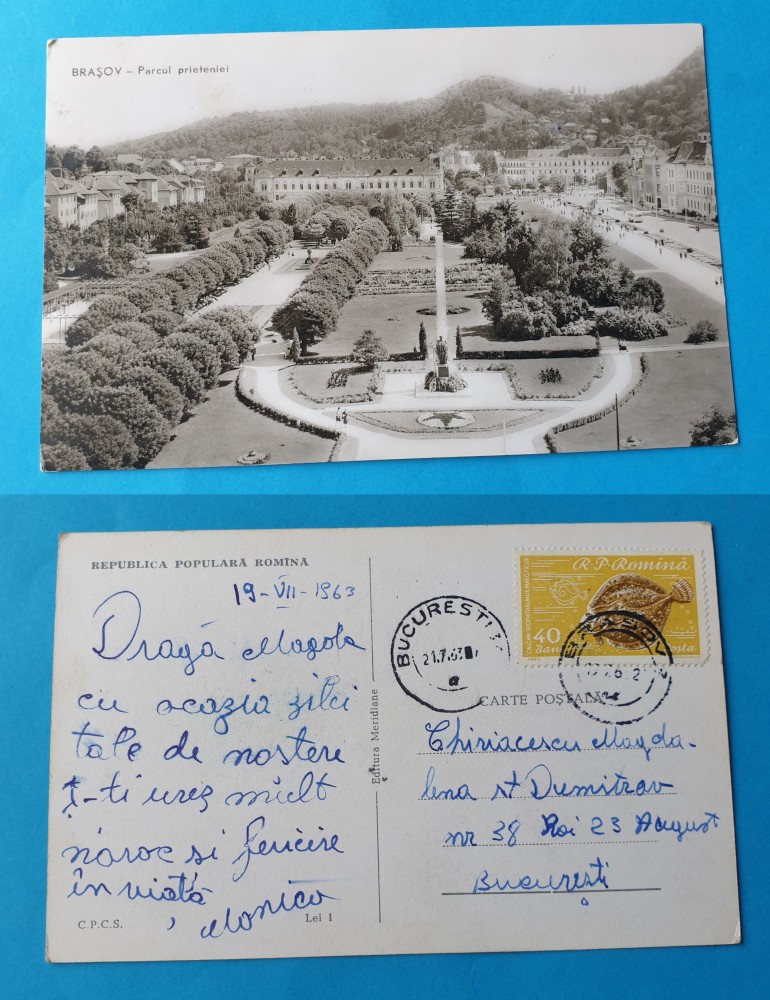 BRAŞOV – Parcul prieteniei
REPUBLICA POPULARĂ ROMÎNĂ
19-VII-1963
Dragă Magda
cu ocazia zilei
tale de nastere
î-ti urez mult
noroc si fericire
în viată
, Monica
C.P.C.S.
Lei 1
Editura Meridiane
BUCURESTI
21.7.63
a
R.P.Romină
40
Bani
Posta
BRASOV
CARTE POŞTALĂ
Chiriacescu Magda-
lena st Dumitrov
nr 38 Roi 23 August
Bucureşti